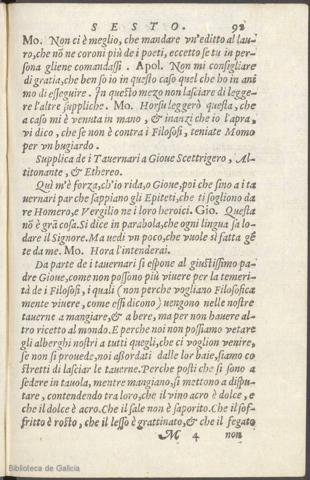 SESTO. 92
Mo. Non ci è meglio, che mandare vn'editto al lau-
ro, che nõ ne coroni più de i poeti, eccetto se tu in per-
sona gliene comandassi. Apol. Non mi consigliare
di gratia, che ben so io in questo caso quel che ho in ani
mo di esseguire. In questo mezo non lasciare di legge-
re l'altre suppliche. Mo. Horsu leggerò questa, che
a caso mi è venuta in mano, & inanzi che io l'apra,
vi dico, che se non è contra i Filosofi, teniate Momo
per vn bugiardo.
Supplica de i Tauernari a Gioue Scettrigero, Al-
titonante, & Ethereo.
Quì m'è forza, ch'io rida, o Gioue, poi che sino a i ta
uernari par che sappiano gli Epiteti, che ti sogliono da
re Homero, e Vergilio ne i loro heroici. Gio. Questa
nõ è grã cosa. Si dice in parabola, che ogni lingua sa lo-
dare il Signore. Ma uedi vn poco, che vuole sia fatta gẽ
te da me. Mo. Hora l'intenderai.
Da parte de i tauernari si espone al giustissimo pa-
dre Gioue, come non possono più viuere per la temeri-
tà de i Filosofi, i quali (non perche vogliano Filosofica
mente viuere, come essi dicono) uengono nelle nostre
tauerne a mangiare, & a bere, ma per non hauere al-
tro ricetto al mondo. E perche noi non possiamo vetare
gli alberghi nostri a tutti quegli, che ci voglion venire,
se non si prouede, noi aßordati dalle lor baie, siamo co
stretti di lasciar le tauerne. Perche posti che si sono a
sedere in tauola, mentre mangiano, si mettono a dispu-
tare, contendendo tra loro, che il vino acro è dolce, e
che il dolce è acro. Che il sale non è saporito. Che il sof-
fritto è rosto, che il lesso è grattinato, & che il fegato
M 4 non
Biblioteca de Galicia